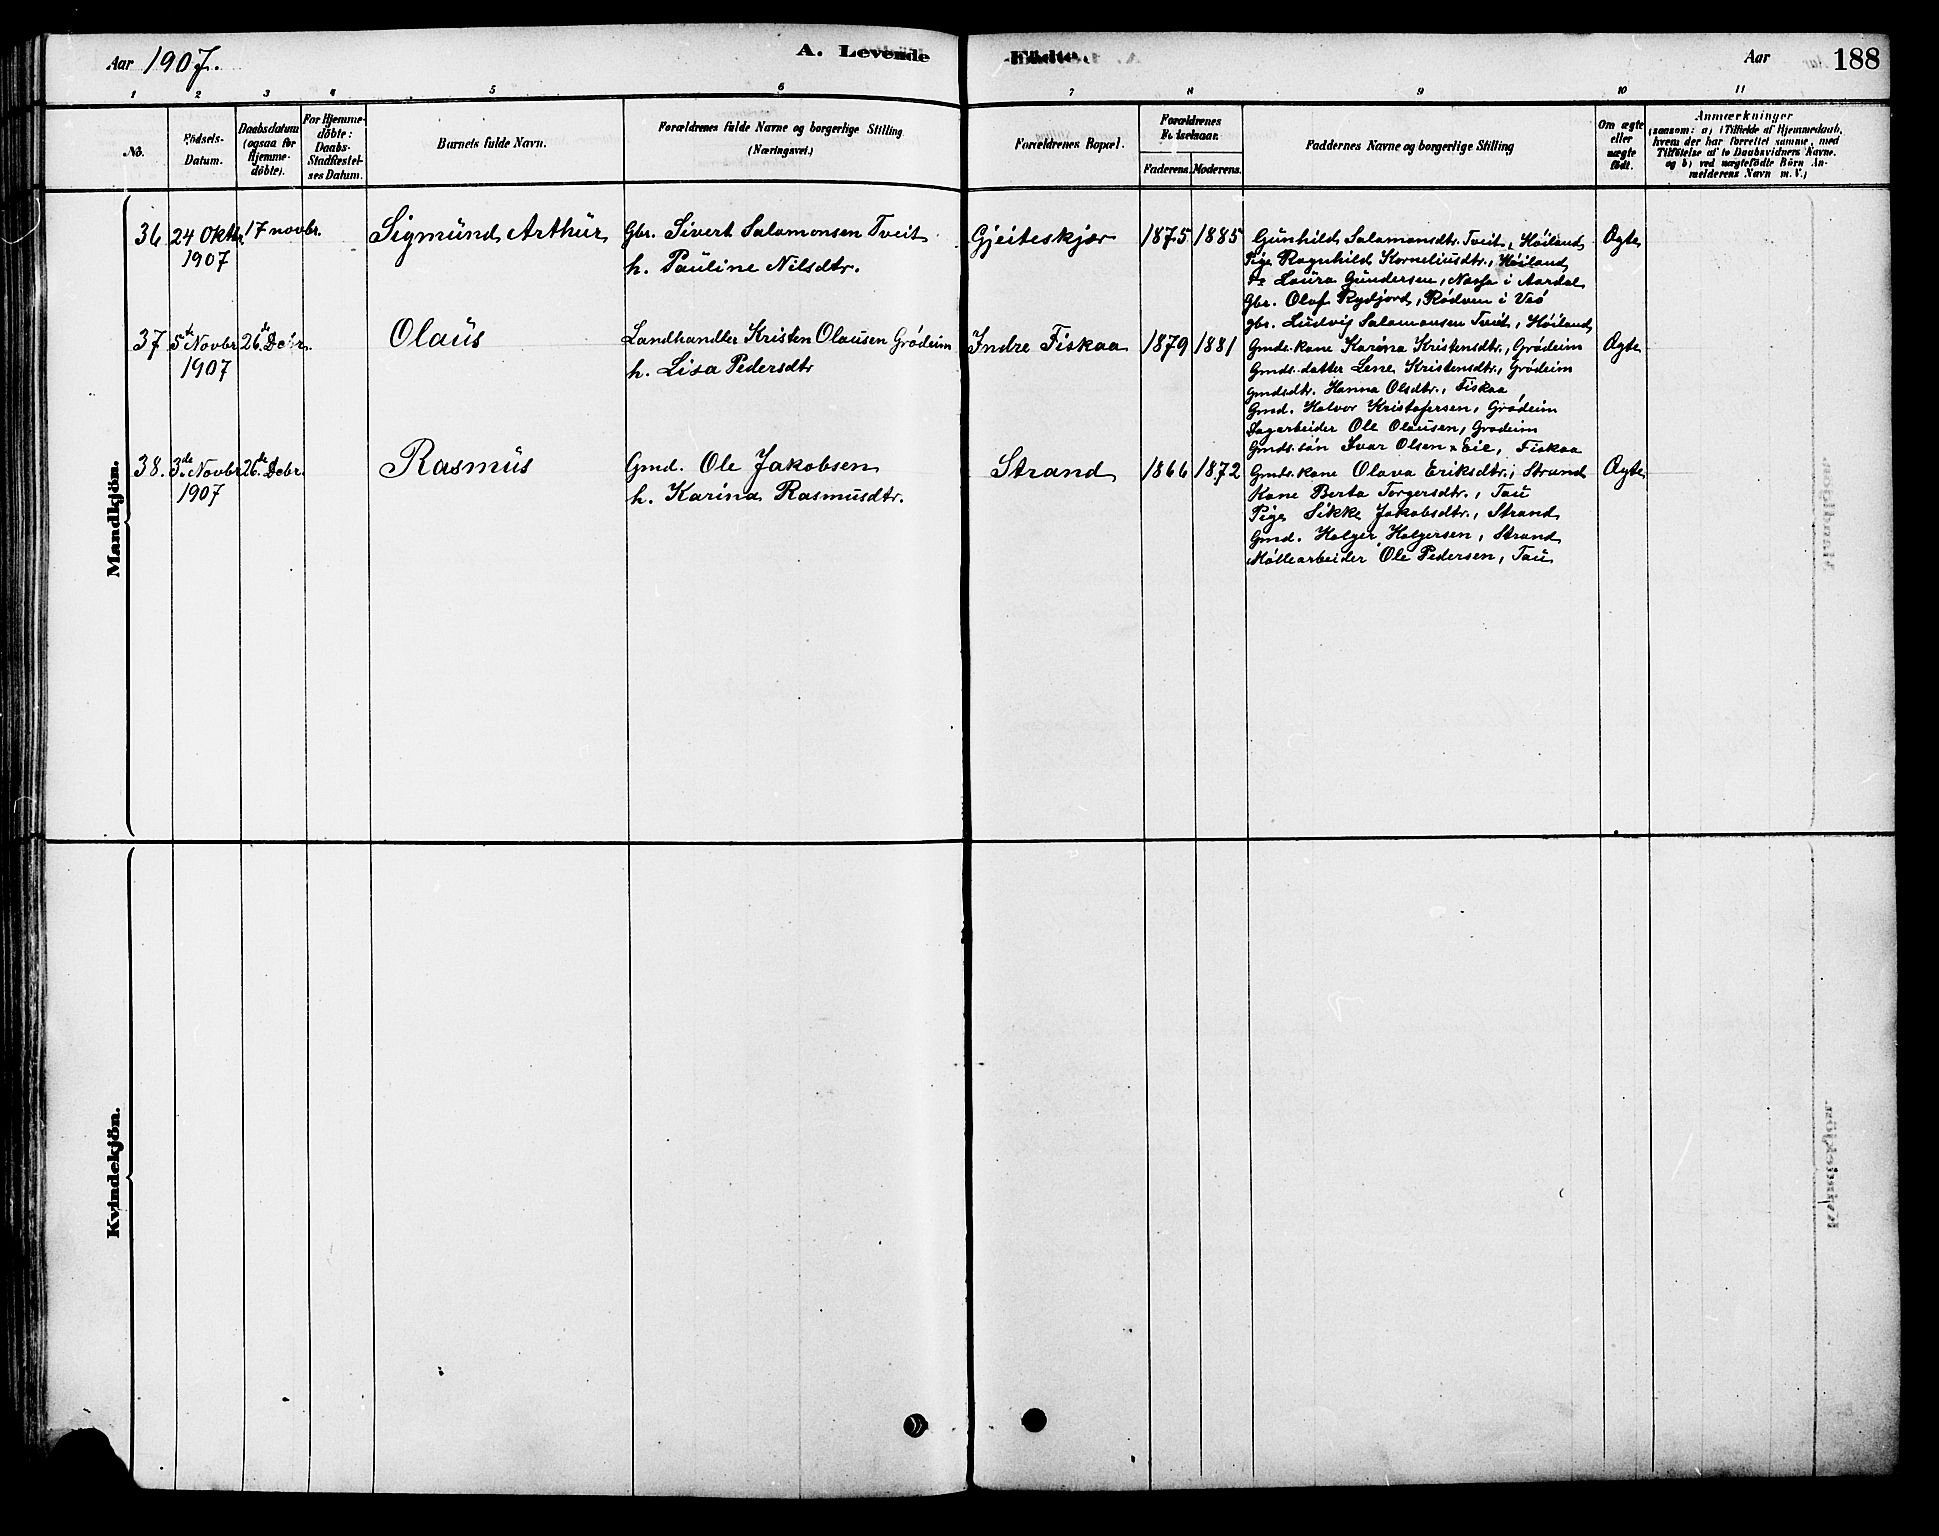 Aar 1907.
A. Levende
Födte.
Aar
188
1
2
3
4
5
6
7
8
9
10
11
No.
Födsels-
Datum.
Daabsdatum
(ogsaa for
Hjemme-
döbte).
For Hjemme-
döbte:
Daabs-
Stadfæstel-
ses Datum.
Barnets fulde Navn.
Forældrenes fulde Navne og borgerlige Stilling
(Næringsvei.)
Forældrenes Bopæl.
Forældrenes
Födselsaar.
Faderens.
Moderens.
Faddernes Navne og borgerlige Stilling
Om ægte
eller
uægte
födt.
Anmærkninger
(saasom: a) i Tilfælde af Hjemmedaab,
hvem der har forrettet samme, med
Tilföielse af to Daabsvidners Navne,
og b) ved uægtefödte Börn An-
melderens Navn m. V.)
Mandkjön.
36
24 Oktbr.
1907
17 novbr.
Sigmund Arthur
Gbr. Sivert Salomonsen Tveit
h. Pauline Nilsdtr.
Gjeiteskjær
1875
1885
Gunhild Salamonsdtr. Tveit, Höiland
Pige Ragnhild Korneliusdtr., Höiland
Laura Gundersen, i Aardal
Gbr. Olaf Rydjord, Rödven i
gbr. Ludvig Salamonsen Tveit, Höiland
Ægte
37.
5te Novbr
1907
26de Debr.
Olaus
Landhandler Kristen Olausen Grödeim
h. Lisa Pedersdtr
Indre Fiskaa
1879
1881
Gmds. kone Karina Kristensdtr., Grödeim
Gmds. datter Lene Kristensdtr., Grödeim
gmdsdtr. Hanna Olsdtr., Fiskaa
Gmd. Halvor Kristofersen, Grödeim
Dagarbeider Ole Olausen, Grödeim
Gmds. sön Ivar Olsen Eie, Fiskaa
Ægte
38.
3de Novbr
1907
26de Debr.
Rasmus
Gmd. Ole Jakobsen
h. Karina Rasmusdtr.
Strand
1866
1872
Gmds. kone Olava Eriksdtr., Strand
Kone Berta Torgersdtr., Tau
Pige Sikke Jakobsdtr., Strand
Gmd. Holger Holgersen, Strand
Möllearbeider Ole Pedersen, Tau
Ægte
Kvindekjön.